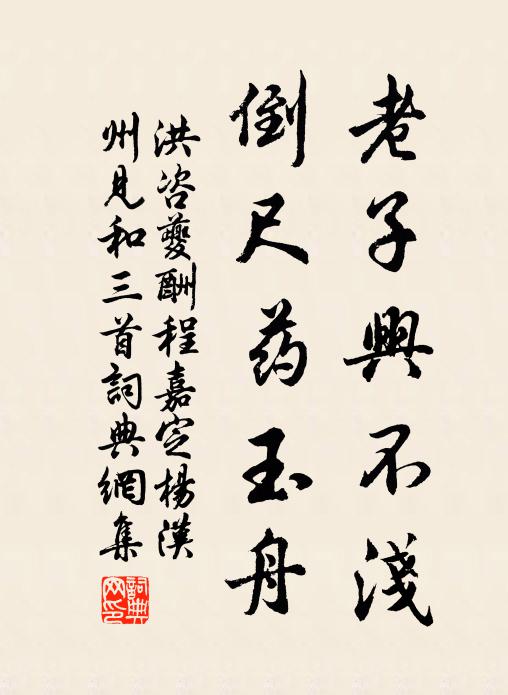 老子興不淺
倒尺药玉舟
洪咨夔酬程嘉定楊漢
州見和三首詞典網集
詞典網印